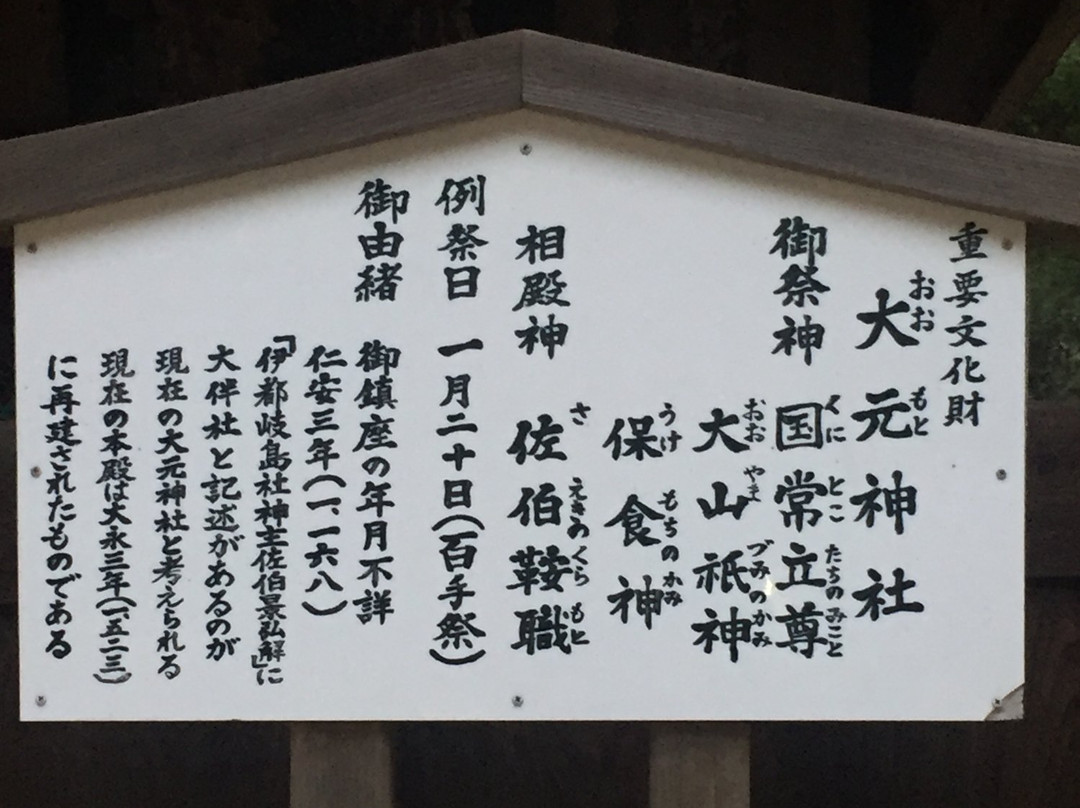 重要文化財
大元神社
おおもと
御祭神 国常立尊
くにとこたちのみこと
大山祇神
おおやまづみのかみ
保食神
うけもちのかみ
相殿神 佐伯鞍職
さえきのくらもと
例祭日 一月二十日(百手祭)
御由緒 御鎮座の年月不詳
仁安三年(一、一六八)
「伊都岐島社神主佐伯景弘解」に
大伴社と記述があるのが
現在の大元神社と考えられる
現在の本殿は大永三年(一、五二三)
に再建されたものである